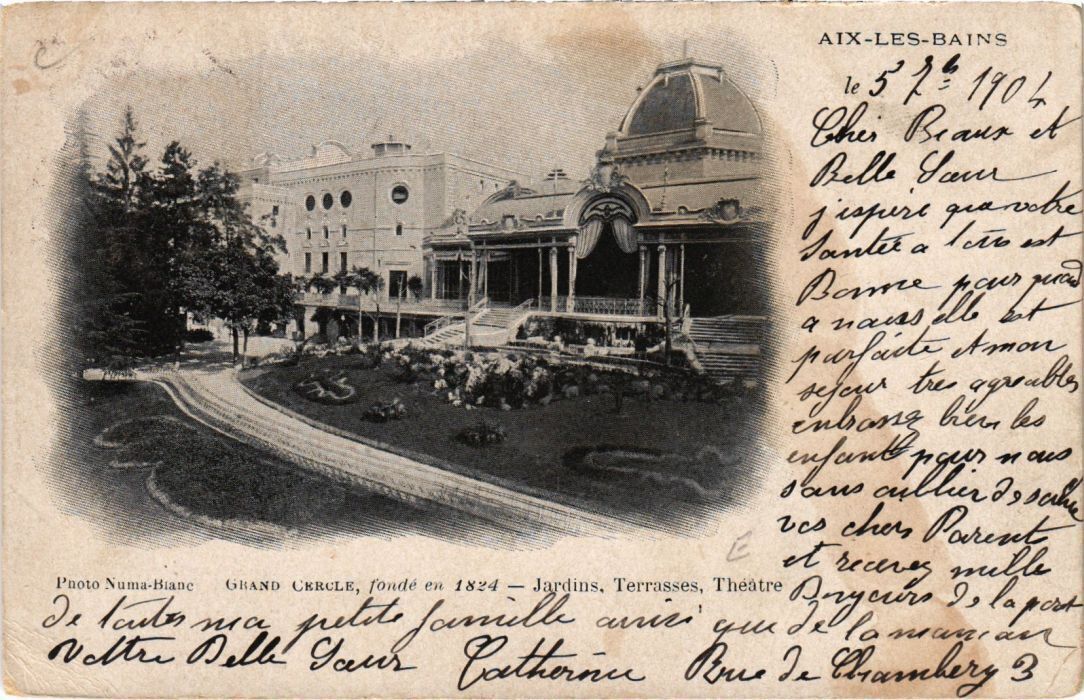 AIX-LES-BAINS
le 5 7b 1904
Cher Beaux et
Belle Sœur
j'espere que votre
Santée a tous est
Bonne pour quad
a nous elle est
parfaite et mon
sejour tres agreables
enbrassé bien les
enfants pour nous
sans oublier de
vos chers Parents
et recevez mille
Bonjours de la part
Photo Numa-Blanc GRAND CERCLE, fondé en 1824 — Jardins, Terrasses, Théâtre
de toutes ma petite famille ainsi que de la maman
Vottre Belle Sœur Catherine Rue de Chambery 3